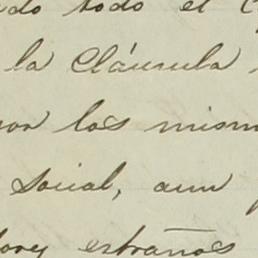 do todo el
la Cláusula
por los mism
social, aun
estraños